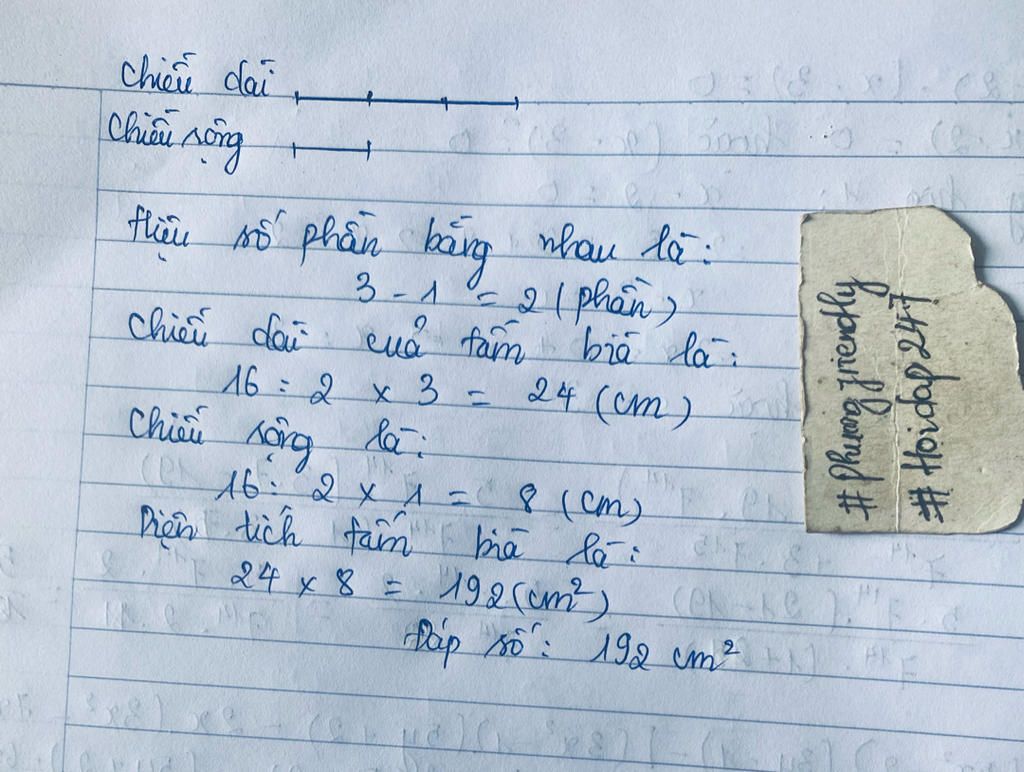 Chiều dài
Chiều rộng
Hiệu số phần bằng nhau là:
3 - 1 = 2 (phần)
Chiều dài của tấm bìa là:
16 : 2 x 3 = 24 (cm)
Chiều rộng là:
16 : 2 x 1 = 8 (cm)
Diện tích tấm bìa là:
24 x 8 = 192 (cm²)
Đáp số: 192 cm²
#Phuongfriendly
#Hoidap247